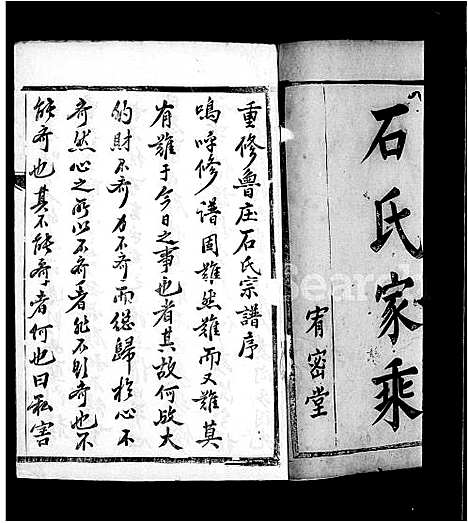 石氏家乘
宥密堂
重修魯庄石氏宗譜序
嗚呼修譜固難然難而又難莫
有難于今日之事也者其故何故大
約財不齊力不齊而総歸於心不
齊然心之所以不齊者非不欲齊也不
能齊也其不能齊者何也曰私害
Search